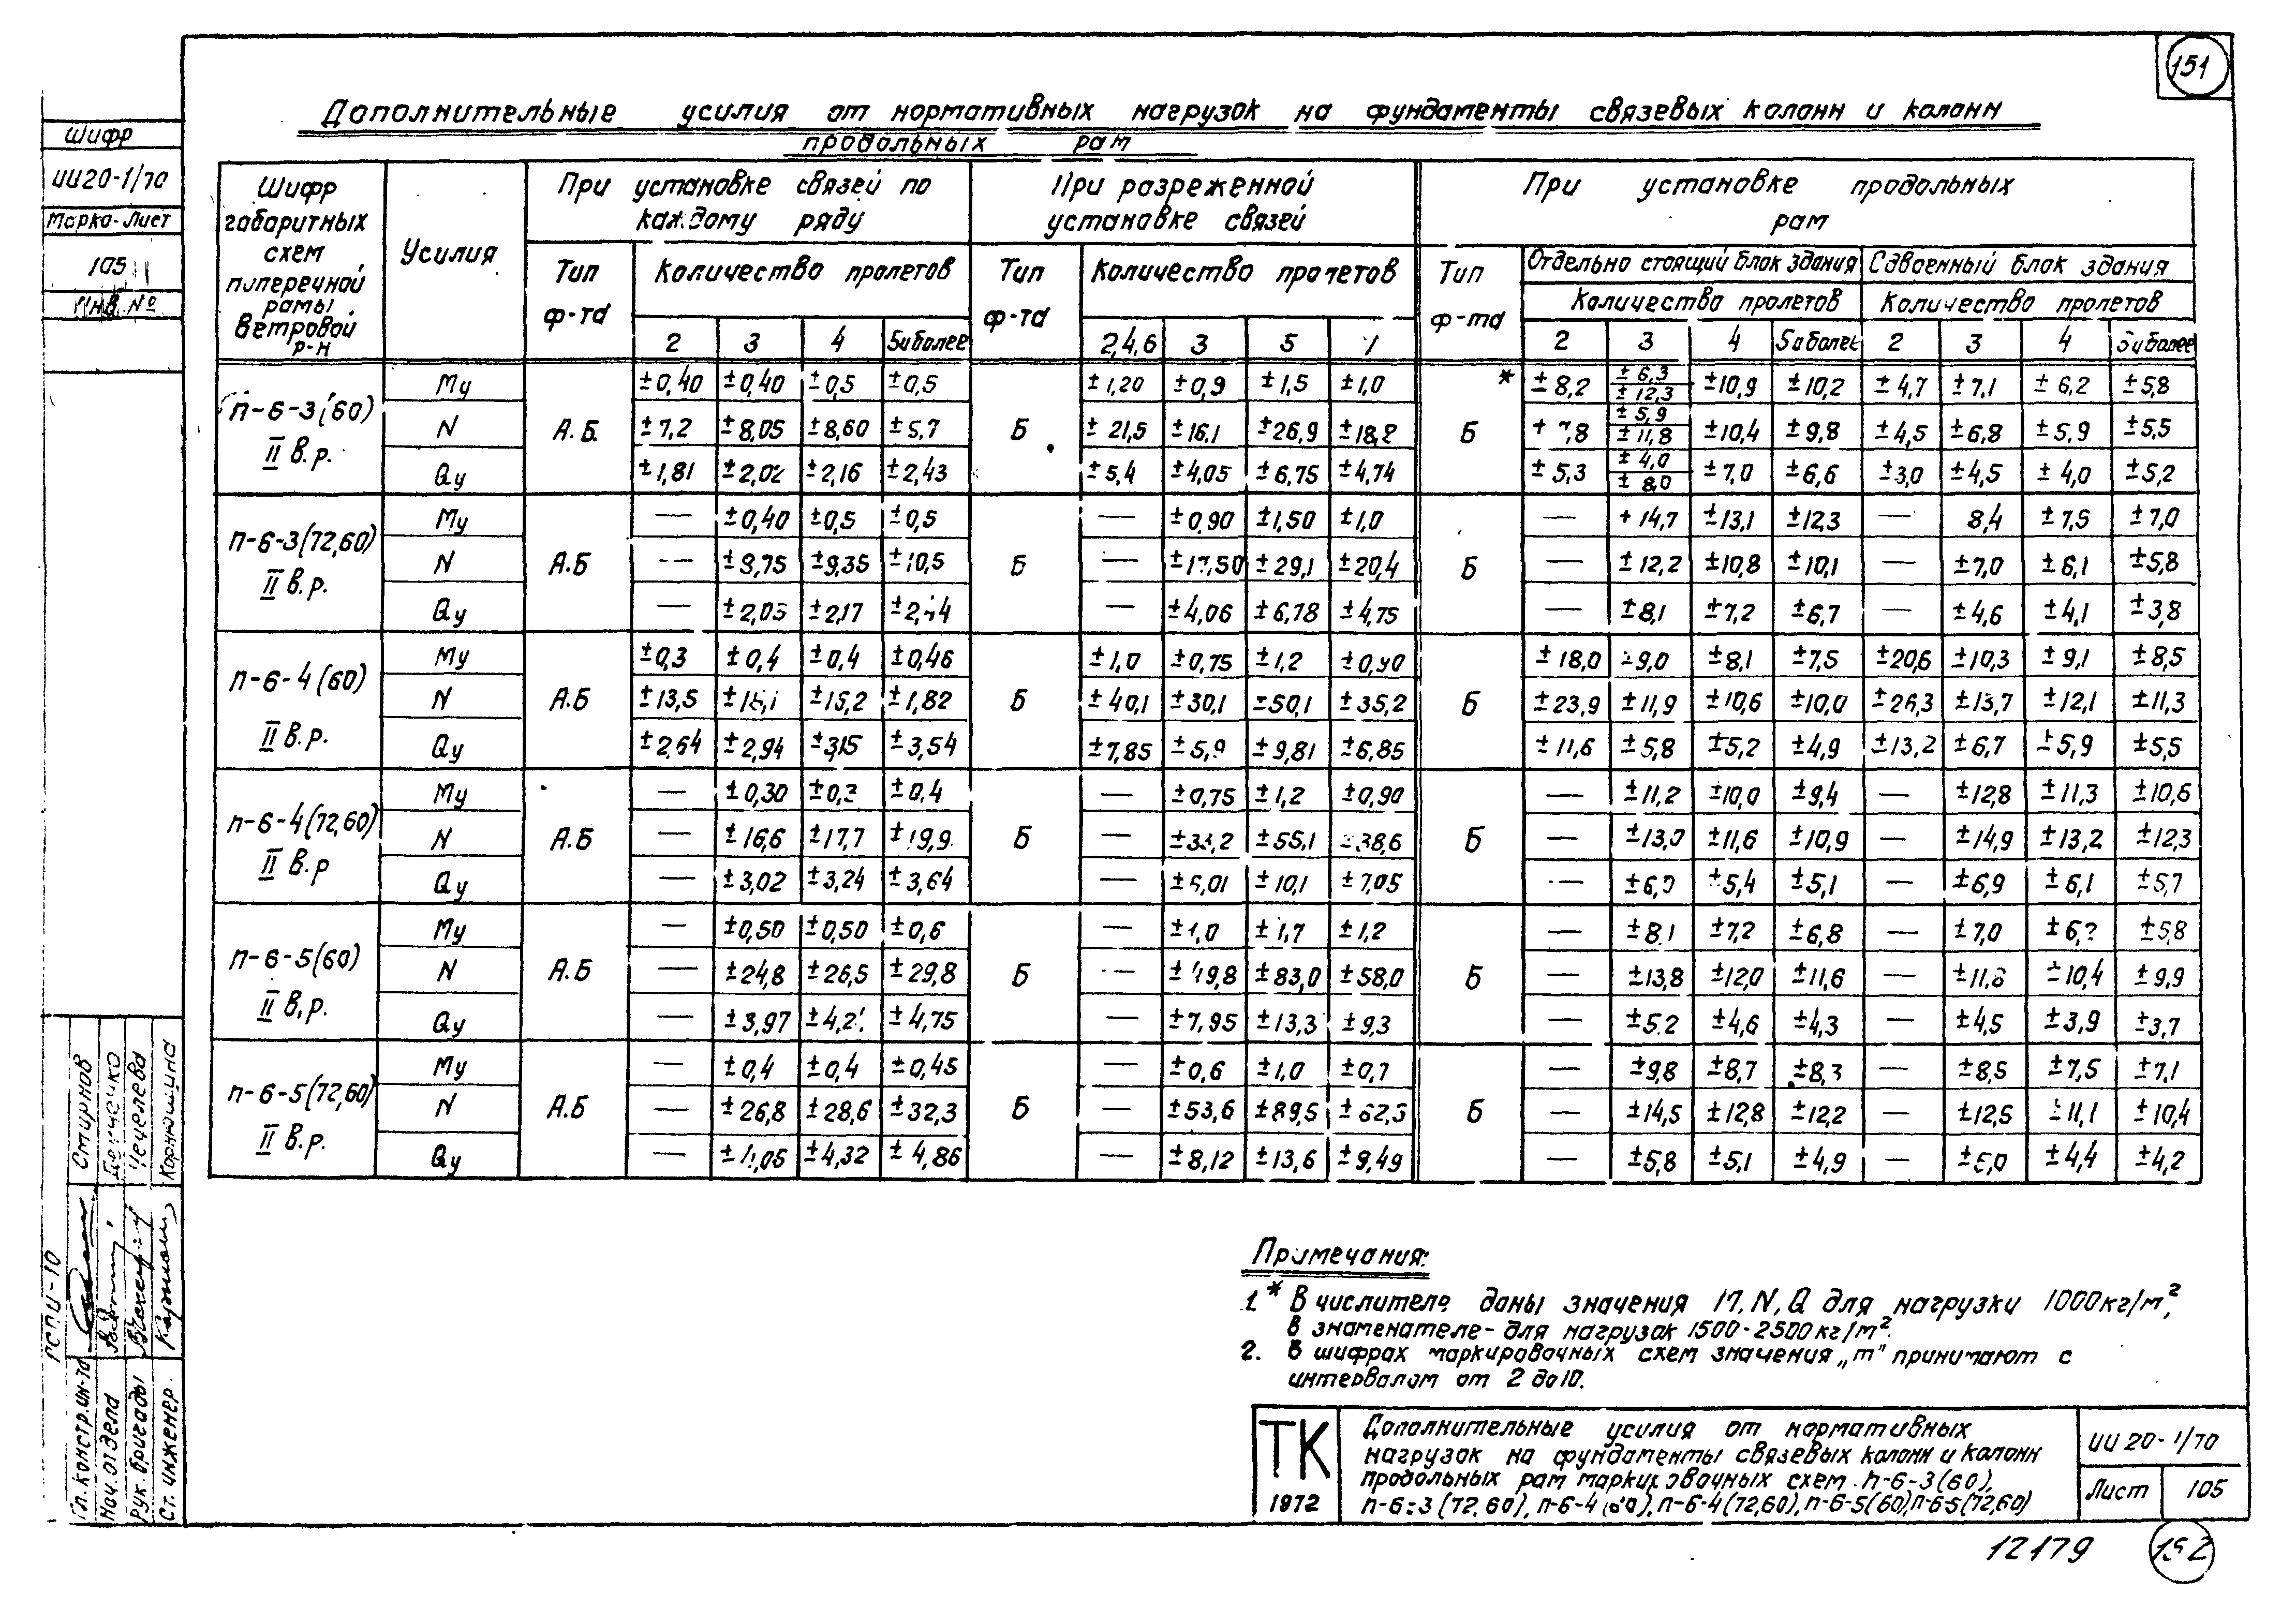 151
Дополнительные усилия от нормативных нагрузок на фундаменты связевых колонн и колонн
продольных рам
Шифр
ИИ20-1/70
Марка-Лист
105
Инв. №
Шифр габаритных схем поперечной рамы Ветровой р-н
Усилия
При установке связей по каждому ряду
При разреженной установке связей
При установке продольных рам
Тип ф-та
Количество пролетов
Тип ф-та
Количество пролетов
Тип ф-та
Отдельно стоящий блок здания
Сдвоенный блок здания
Количество пролетов
Количество пролетов
2 3 4 5и более
2,4,6 3 5 7
2 3 4 5и более 2 3 4 5и более
п-6-3(60) II в.р.
А.Б. Б Б
Му ±0,40 ±0,40 ±0,5 ±0,5 ±1,20 ±0,9 ±1,5 ±1,0 * ±8,2 ±6,3 ±12,3 ±10,9 ±10,2 ±4,7 ±7,1 ±6,2 ±5,8
N ±7,2 ±8,05 ±8,60 ±5,7 ±21,5 ±16,1 ±26,9 ±18,8 ±7,8 ±5,9 ±11,8 ±10,4 ±9,8 ±4,5 ±6,8 ±5,9 ±5,5
Qу ±1,81 ±2,02 ±2,16 ±2,43 ±5,4 ±4,05 ±6,75 ±4,74 ±5,3 ±4,0 ±8,0 ±7,0 ±6,6 ±3,0 ±4,5 ±4,0 ±5,2
п-6-3(72,60) II в.р.
А.Б Б Б
Му — ±0,40 ±0,5 ±0,5 — ±0,90 ±1,50 ±1,0 — +14,7 ±13,1 ±12,3 — 8,4 ±7,5 ±7,0
N — ±8,75 ±9,35 ±10,5 — ±17,50 ±29,1 ±20,4 — ±12,2 ±10,8 ±10,1 — ±7,0 ±6,1 ±5,8
Qу — ±2,03 ±2,17 ±2,44 — ±4,06 ±6,78 ±4,75 — ±8,1 ±7,2 ±6,7 — ±4,6 ±4,1 ±3,8
п-6-4(60) II в.р.
А.Б Б Б
Му ±0,3 ±0,4 ±0,4 ±0,46 ±1,0 ±0,75 ±1,2 ±0,90 ±18,0 ±9,0 ±8,1 ±7,5 ±20,6 ±10,3 ±9,1 ±8,5
N ±13,5 ±15,2 ±1,82 ±40,1 ±30,1 ±50,1 ±35,2 ±23,9 ±11,9 ±10,6 ±10,0 ±26,3 ±13,7 ±12,1 ±11,3
Qу ±2,64 ±2,94 ±3,15 ±3,54 ±7,85 ±5,9 ±9,81 ±6,85 ±11,6 ±5,8 ±5,2 ±4,9 ±13,2 ±6,7 ±5,9 ±5,5
п-6-4(72,60) II в.р
А.Б Б Б
Му — ±0,30 ±0,3 ±0,4 — ±0,75 ±1,2 ±0,90 — ±11,2 ±10,0 ±9,4 — ±12,8 ±11,3 ±10,6
N — ±16,6 ±17,7 ±19,9 — ±33,2 ±55,1 ±38,6 — ±13,0 ±11,6 ±10,9 — ±14,9 ±13,2 ±12,3
Qу — ±3,02 ±3,24 ±3,64 — ±6,01 ±10,1 ±7,05 — ±5,4 ±5,1 — ±6,9 ±6,1 ±5,7
п-6-5(60) II в.р.
А.Б Б Б
Му — ±0,50 ±0,50 ±0,6 — ±1,0 ±1,7 ±1,2 — ±8,1 ±7,2 ±6,8 — ±7,0 ±5,8
N — ±24,8 ±26,5 ±29,8 — ±49,8 ±83,0 ±58,0 — ±13,8 ±12,0 ±11,6 — ±10,4 ±9,9
Qу — ±3,97 ±4,75 — ±7,95 ±13,3 ±9,3 — ±5,2 ±4,6 ±4,3 — ±4,5 ±3,9 ±3,7
п-6-5(72,60) II в.р.
А.Б Б Б
Му — ±0,4 ±0,4 ±0,45 — ±0,6 ±1,0 ±0,7 — ±9,8 ±8,7 ±8,3 — ±8,5 ±7,5 ±7,1
N — ±26,8 ±28,6 ±32,3 — ±53,6 ±89,5 ±62,5 — ±14,5 ±12,8 ±12,2 — ±12,5 ±11,1 ±10,4
Qу — ±4,05 ±4,32 ±4,86 — ±8,12 ±13,6 ±9,49 — ±5,8 ±5,1 ±4,9 — ±5,0 ±4,4 ±4,2
Примечания:
1.* В числителе даны значения М, N, Q для нагрузки 1000кг/м²,
в знаменателе- для нагрузок 1500-2500кг/м².
2. В шифрах маркировочных схем значения „m" принимают с
интервалом от 2 до 10.
ТК
1972
Дополнительные усилия от нормативных
нагрузок на фундаменты связевых колонн и колонн
продольных рам маркировочных схем п-6-3(60),
п-6-3(72,60), п-6-4(60), п-6-4(72,60), п-6-5(60), п-6-5(72,60)
ИИ 20-1/70
Лист 105
12179
152
РСПИ-10
Гл.констр.ИН-70 Смирнов
Нач.отдела
Рук. бригады Чечелева
Ст. инженер. Корнюшина